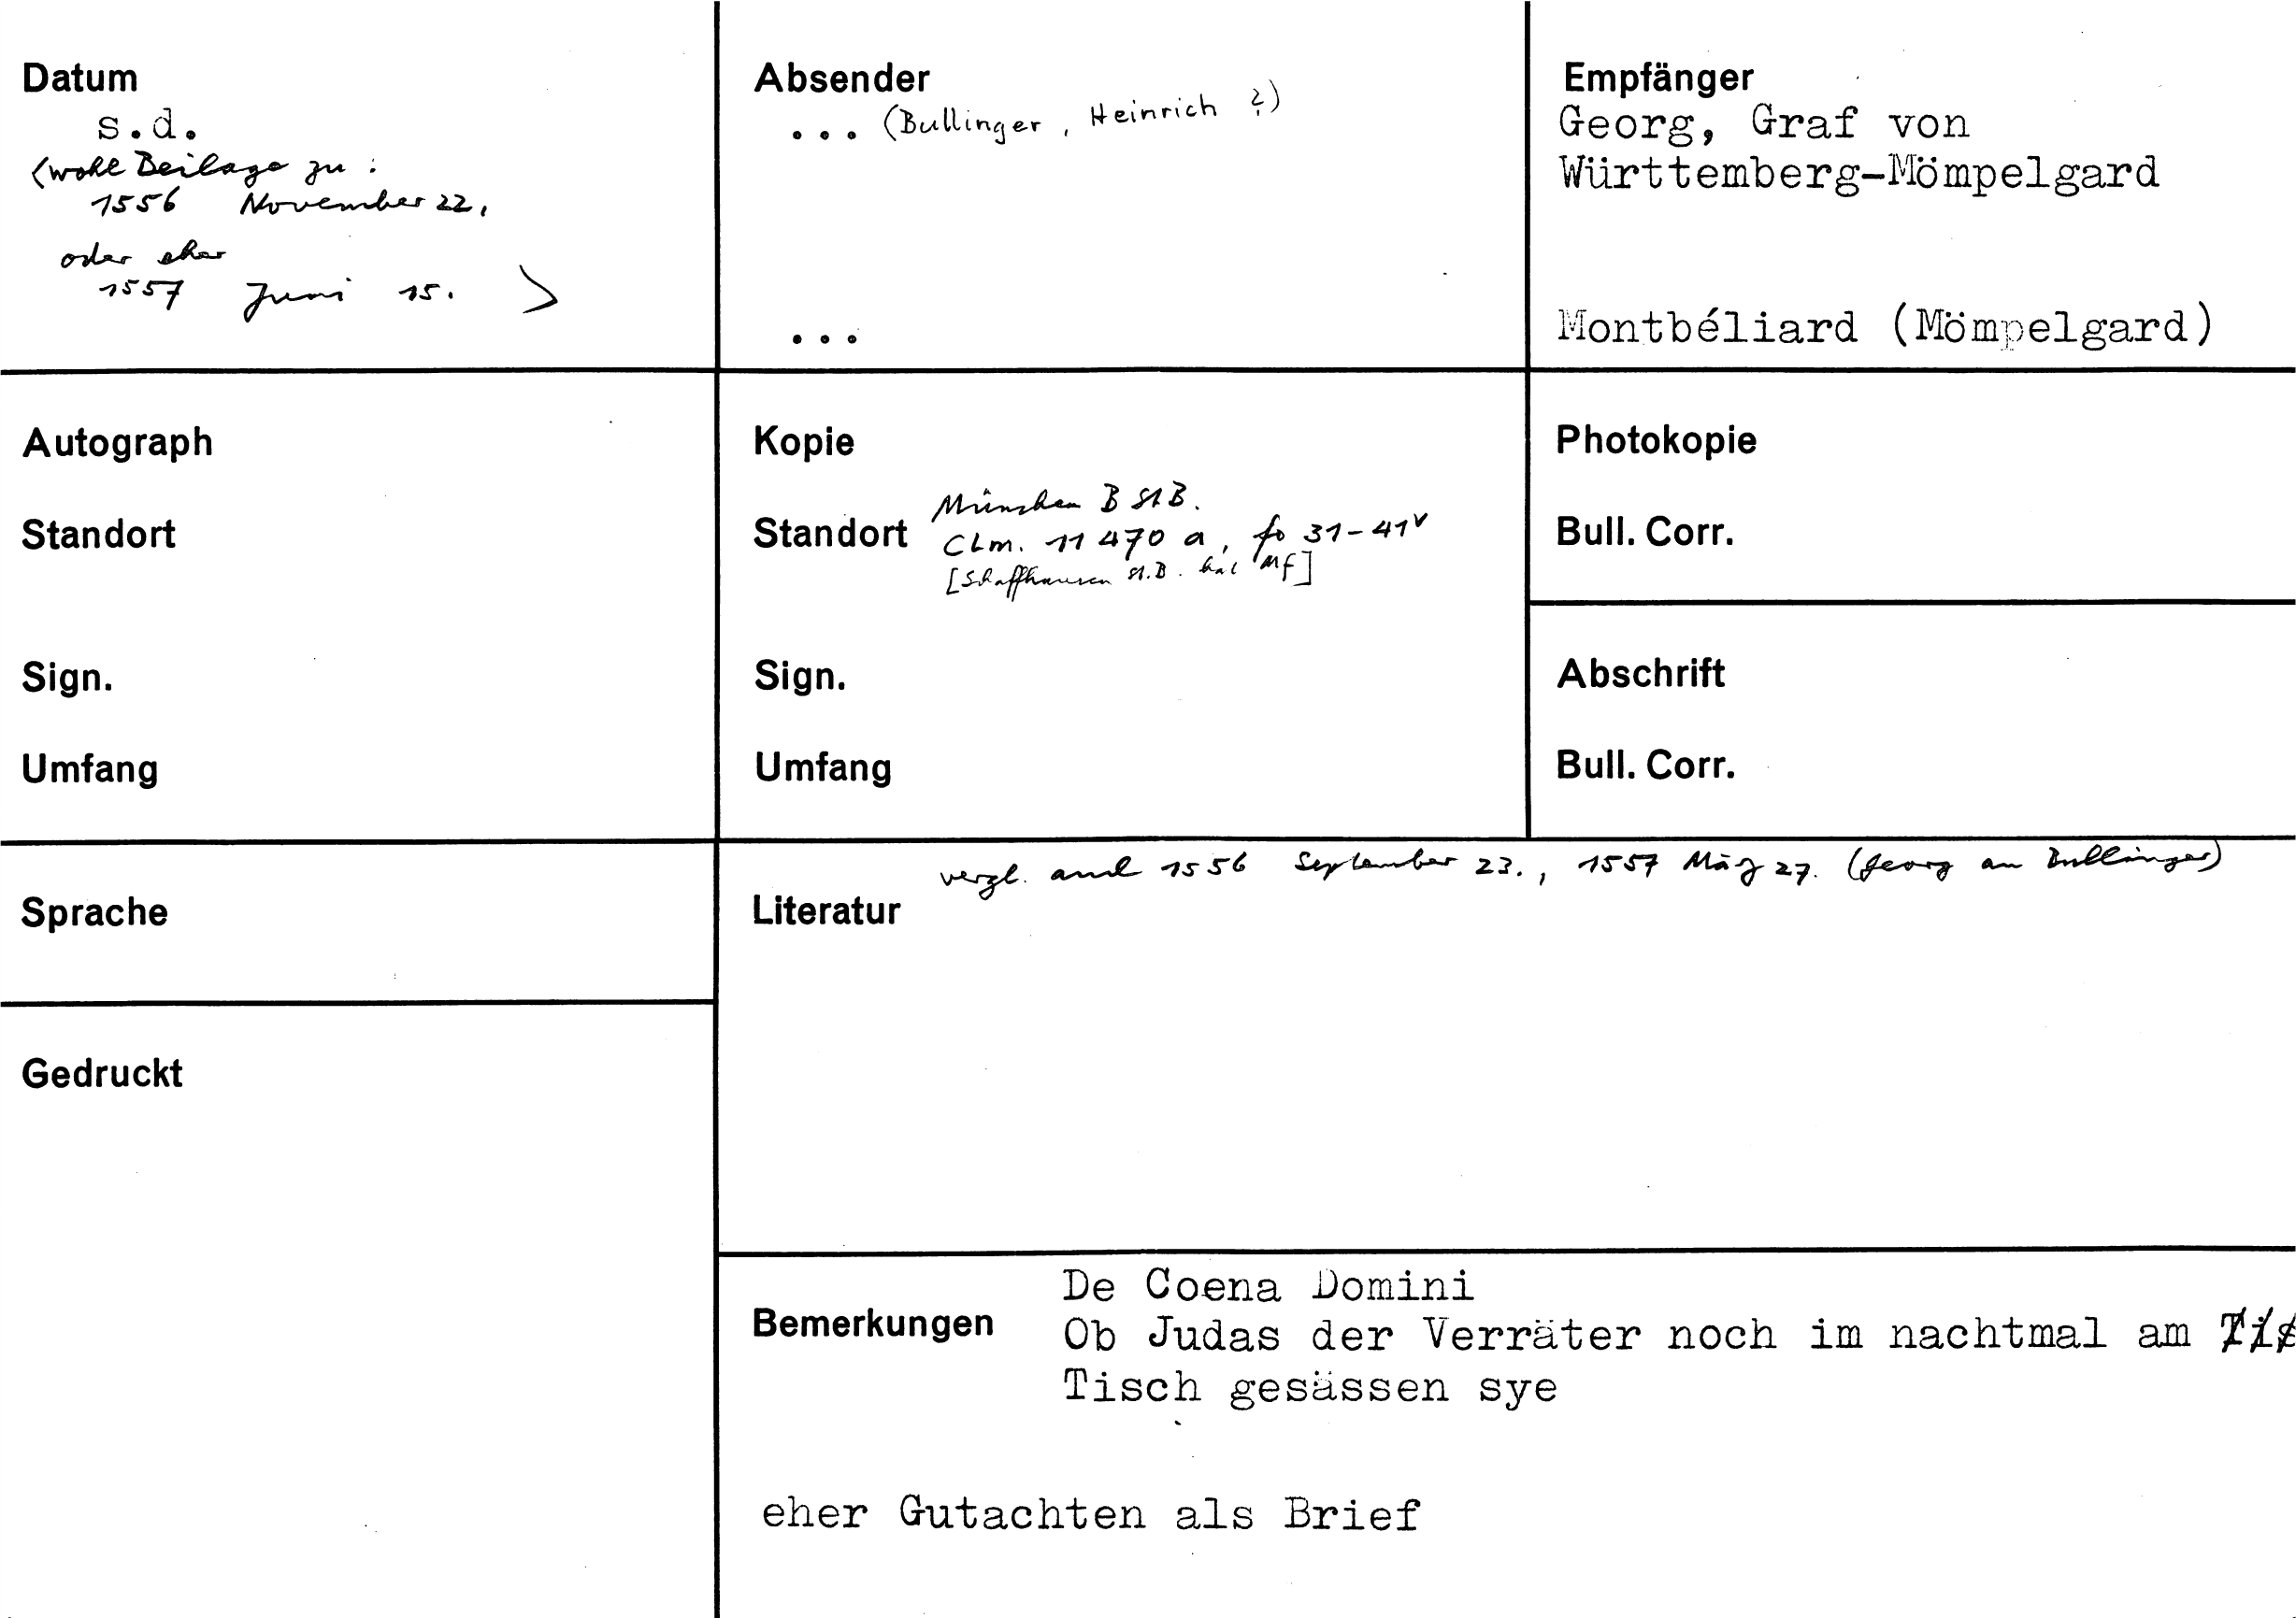 Datum
s.d.
(wohl Beilage zu :
1556 November 22,
oder eher
1557 Juni 15. >
Absender
... (Bullinger, Heinrich ?)
...
Empfänger
Georg, Graf von
Württemberg-Mömpelgard
Montbéliard (Mömpelgard)
Autograph
Standort
Sign.
Umfang
Kopie
München B StB.
Standort CLm. 11 470 a, fo 31-41v
[Schaffhausen St.B. hat Mf]
Sign.
Umfang
Photokopie
Bull. Corr.
Abschrift
Bull. Corr.
Sprache
Gedruckt
vergl. auch 1556 September 23., 1557 März 27. (Georg an Bullinger)
Literatur
De Coena Domini
Bemerkungen
Ob Judas der Verräter noch im nachtmal am Tis
Tisch gesässen sye
eher Gutachten als Brief